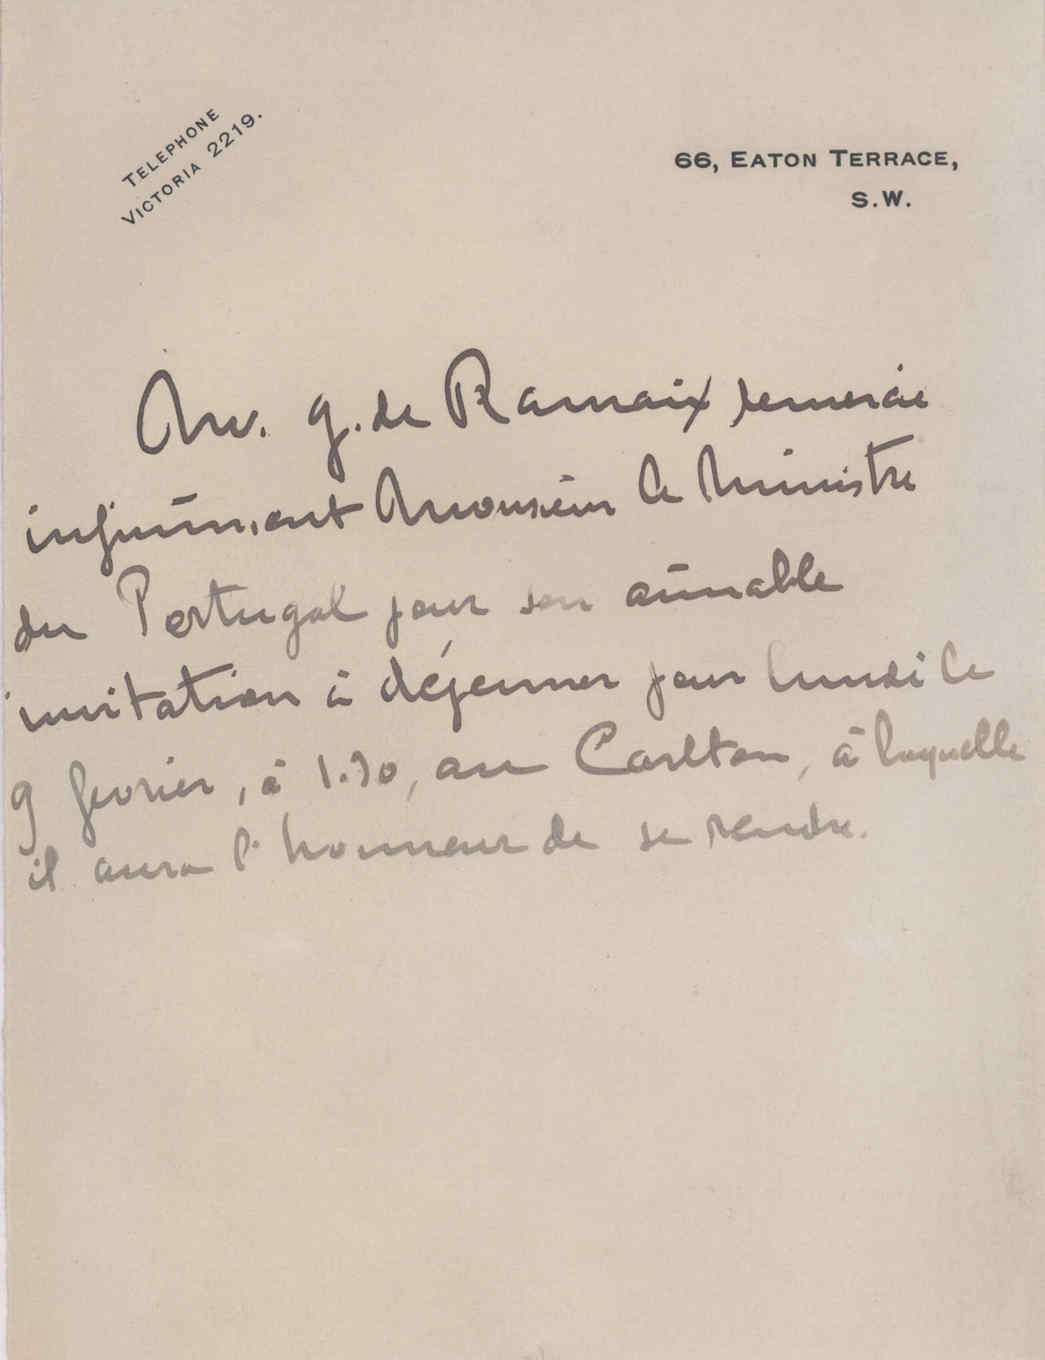 TELEPHONE
VICTORIA 2219.
66, EATON TERRACE,
S.W.
M. G. de Ramaix remercie
infiniment Monsieur le Ministre
du Portugal pour son aimable
invitation à déjeuner pour lundi le
9 février, à 1.30, au Carlton, à laquelle
il aura l'honneur de se rendre.